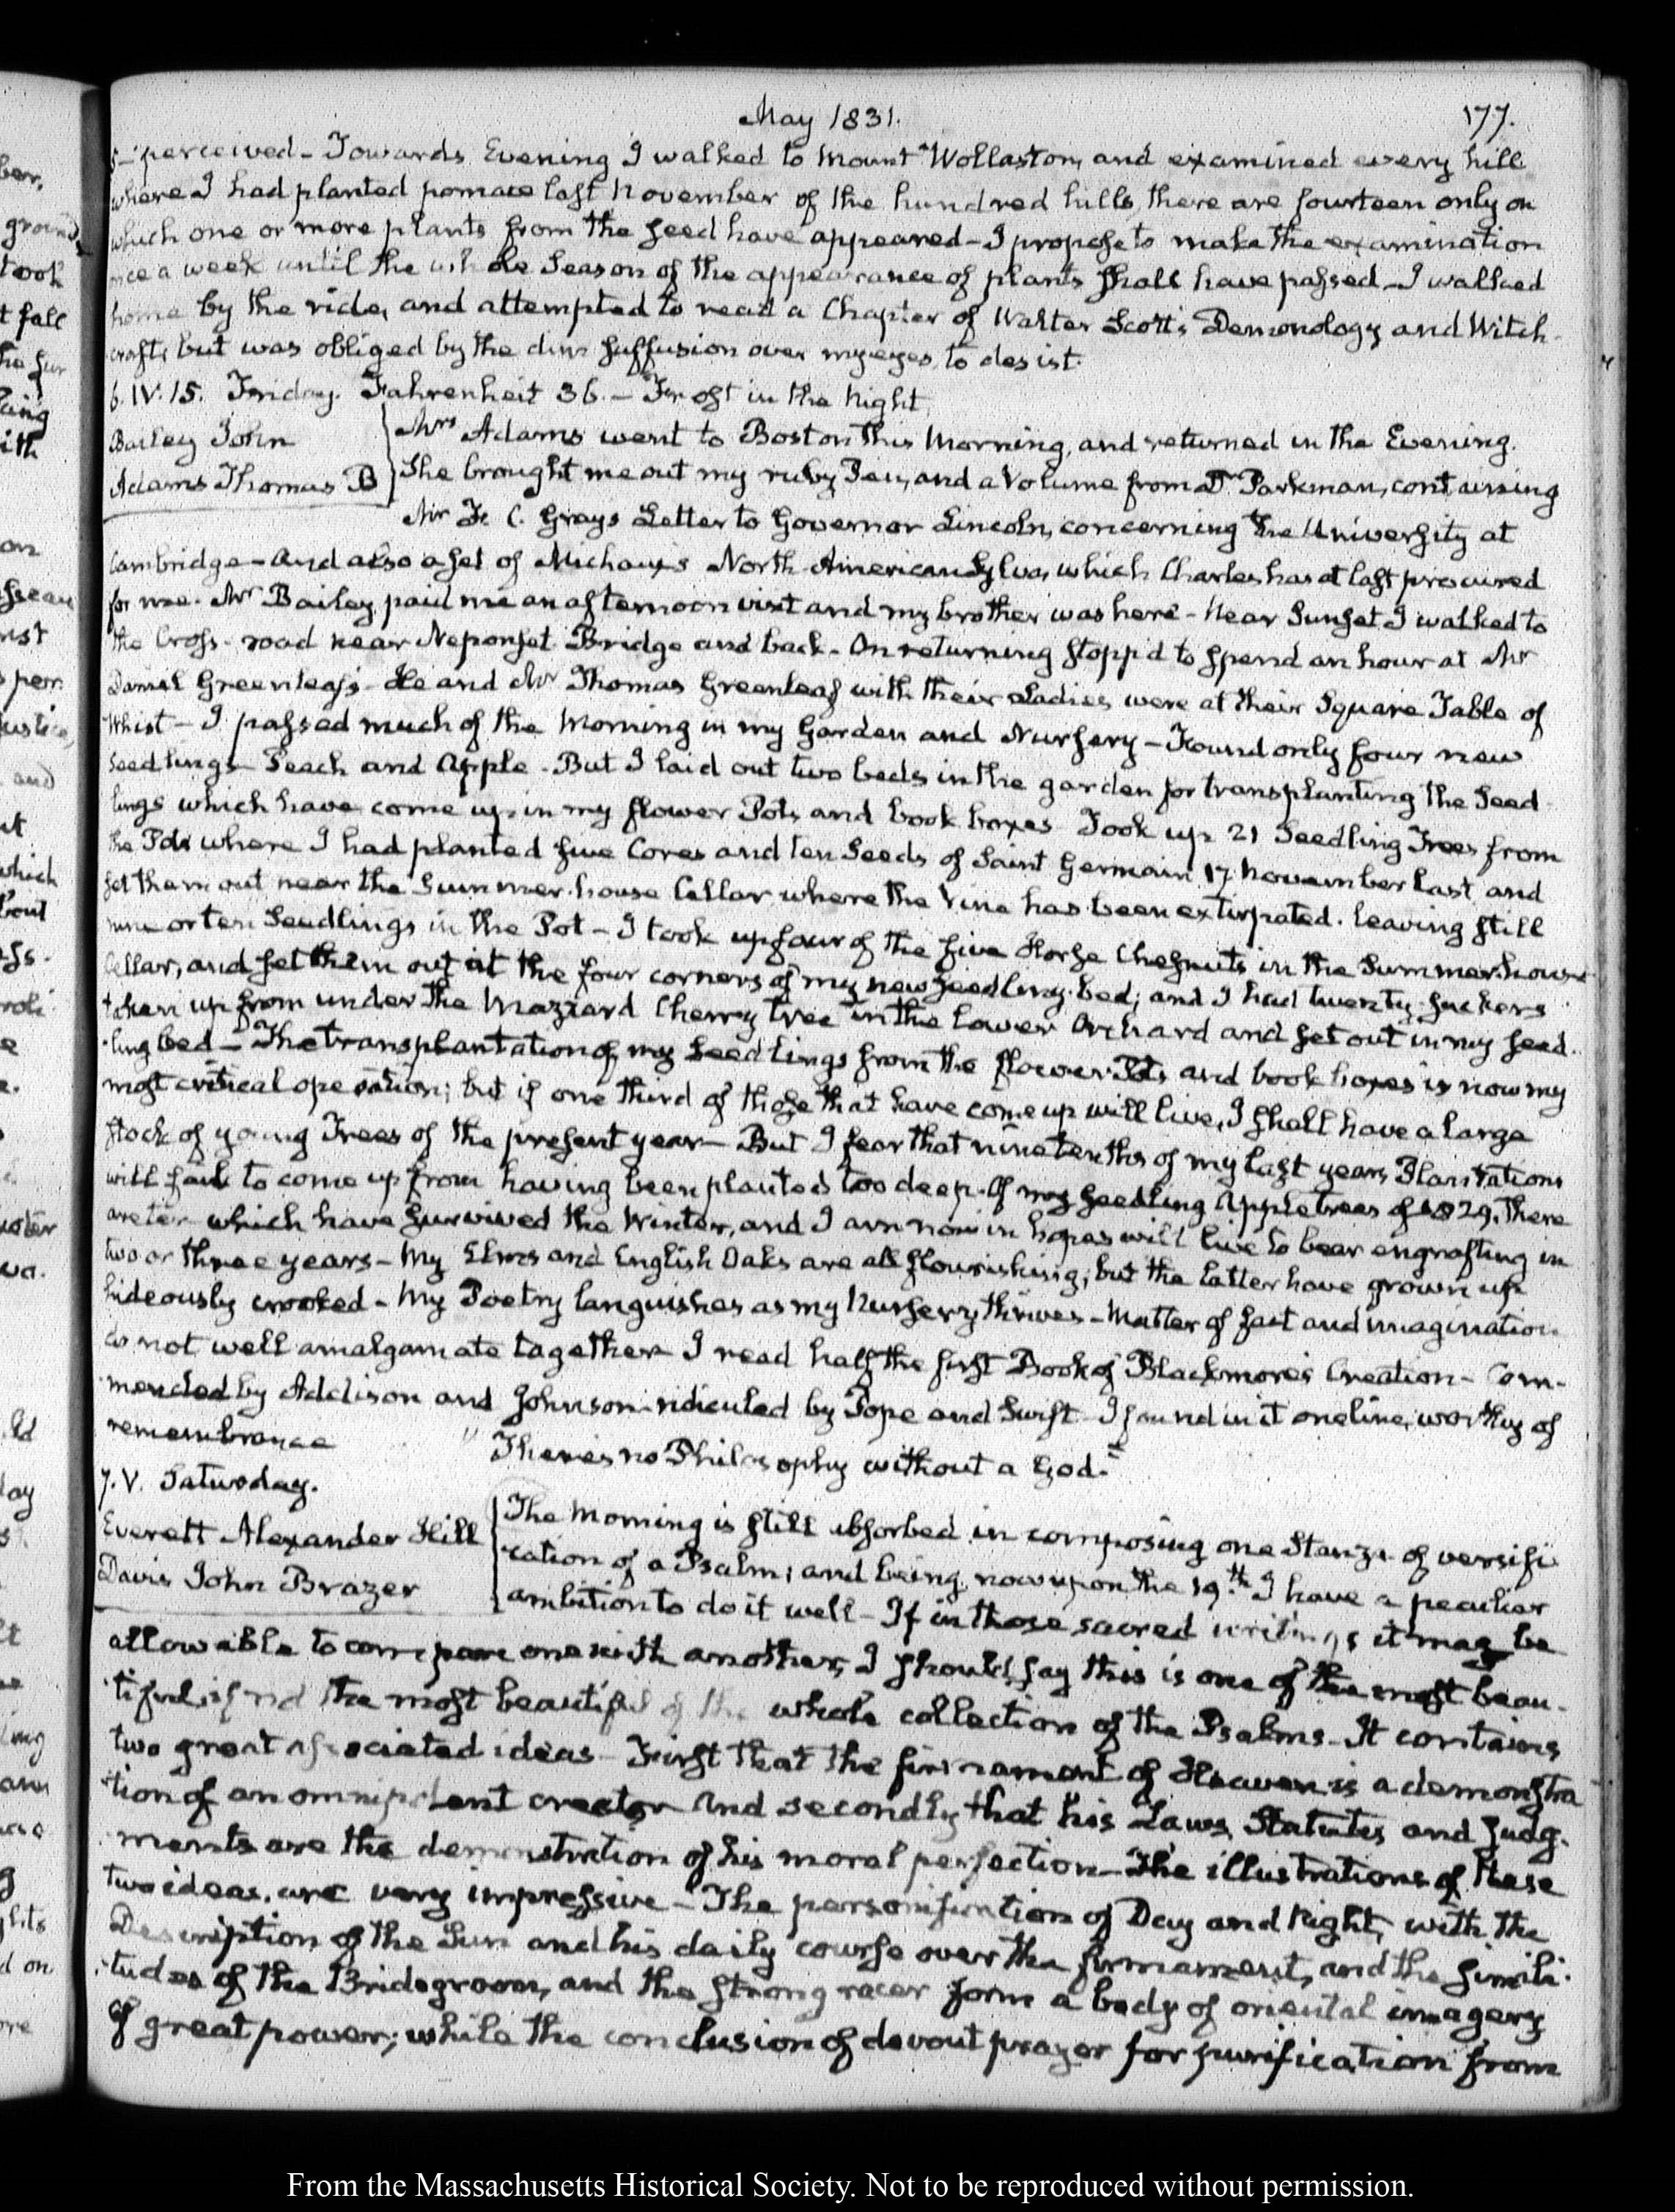 May 1831.
177.
perceived – Towards Evening I walked to Mount Wollaston, and examined every hill
where I had planted pomace last November of the hundred hills, there are fourteen only on
which one or more plants from the seed have appeared – I propose to make the examination
once a week until the whole Season of the appearance of plants shall have passed – I walked
home by the ride, and attempted to read a Chapter of Walter Scott's Demonology and Witch-
crafts, but was obliged by the dim suffusion over my eyes, to desist.
6. IV:15. Friday. Fahrenheit 36. – Frost in the Night
Bailey John
Adams Thomas B
Mrs Adams went to Boston this Morning, and returned in the Evening.
She brought me out my ruby Pen, and a Volume from Dr Parkman, containing
Mr F. C. Grays Letter to Governor Lincoln, concerning the University at
Cambridge – and also a set of Michaux's North American Sylva, which Charles has at last procured
for me. Mr Bailey, paid me an afternoon visit and my brother was here – Near Sunset I walked to
the Cross-road near Neponset Bridge and back – On returning stopp'd to spend an hour at Mr
Daniel Greenleaf's – He and Mr Thomas Greenleaf with their Ladies were at their Square Table of
Whist – I passed much of the Morning in my Garden and Nursery – Found only four new
Seedlings – Peach and Apple – But I laid out two beds in the garden for transplanting the Seed-
lings which have come up in my flower Pots and book boxes – Took up 21 Seedling Trees from
the Pots where I had planted five Cores and ten Seeds of Saint Germain 17 November last and
set them out near the Summer-house Cellar where the Vine has been extirpated. leaving still
nine or ten Seedlings in the Pot – I took up four of the five Horse Chesnuts in the Summer-house
Cellar, and set them out at the four corners of my new Seedling-bed; and I had twenty-suckers
taken up from under the Mazzard Cherry tree in the lower Orchard and set out in my seed-
ling bed – The transplantation of my Seedlings from the flower Pots and book boxes is now my
most critical operation; but if one third of those that have come up will live, I shall have a large
stock of young Trees of the present year – But I fear that nine tenths of my last years, Plantations
will fail to come up from having been planted too deep. Of my Seedling Appletrees of 1829, there
are ten which have survived the Winter, and I am now in hopes will live to bear engrafting in
two or three years – My Elms and English Oaks are all flourishing; but the latter have grown up
hideously crooked – My Poetry languishes as my Nursery thrives – Matter of fact and imagination
do not well amalgamate together – I read half the first Book of Blackmore's Creation – Com-
mended by Addison and Johnson – ridiculed by Pope and Swift – I found in it one line, worthy of
remembrance
"There's no Philosophy without a God."
7. V. Saturday.
Everett Alexander Hill
Davis John Brazer
The Morning is still absorbed in composing one Stanza of versifi-
cation of a Psalm; and being now upon the 19th. I have a peculiar
ambition to do it well – If in those sacred writings it may be
allowable to compare one with another, I should say this is one of the most beau-
tiful, if not the most beautiful of the whole collection of the Psalms – It contains
two great associated ideas – First that the firmament of Heaven is a demonstra
tion of an omnipotent creator – And secondly that his Laws, Statutes and Judg-
ments are the demonstration of his moral perfection – The illustrations of these
two ideas, are very impressive – The personification of Day and Night, with the
Description of the Sun and his daily course over the firmament, and the simili-
tudes of the Bridegroom, and the strong racer form a body of oriental imagery
of great power; while the conclusion of devout prayer for purification from
From the Massachusetts Historical Society. Not to be reproduced without permission.